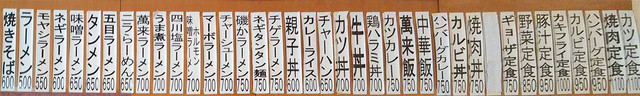 焼きそば 600
ラーメン 500
モヤシラーメン 550
ネギラーメン 600
味噌ラーメン 650
タンメン 650
五目ラーメン 650
ニラらーめん 650
萬来ラーメン 700
うま煮ラーメン 700
四川塩ラーメン 700
味噌ホルモンラーメン
マーボラーメン 700
チャーシューメン 700
磯かラーメン 750
ネギタンタン麺 750
チゲラーメン 750
親子丼 600
カレーライス 600
チャーハン 600
カツ丼 700
牛丼 700
鶏ハラミ丼 700
カツカレー 750
萬来飯 750
中華飯 700
ハンバーグカレー 750
カルビ丼 750
焼肉丼 750
ギョーザ定食 750
野菜定食 750
豚汁定食 850
カキフライ定食 750
カルビ定食 950
ハンバーグ定食 950
焼肉定食 950
カツ定食 1000